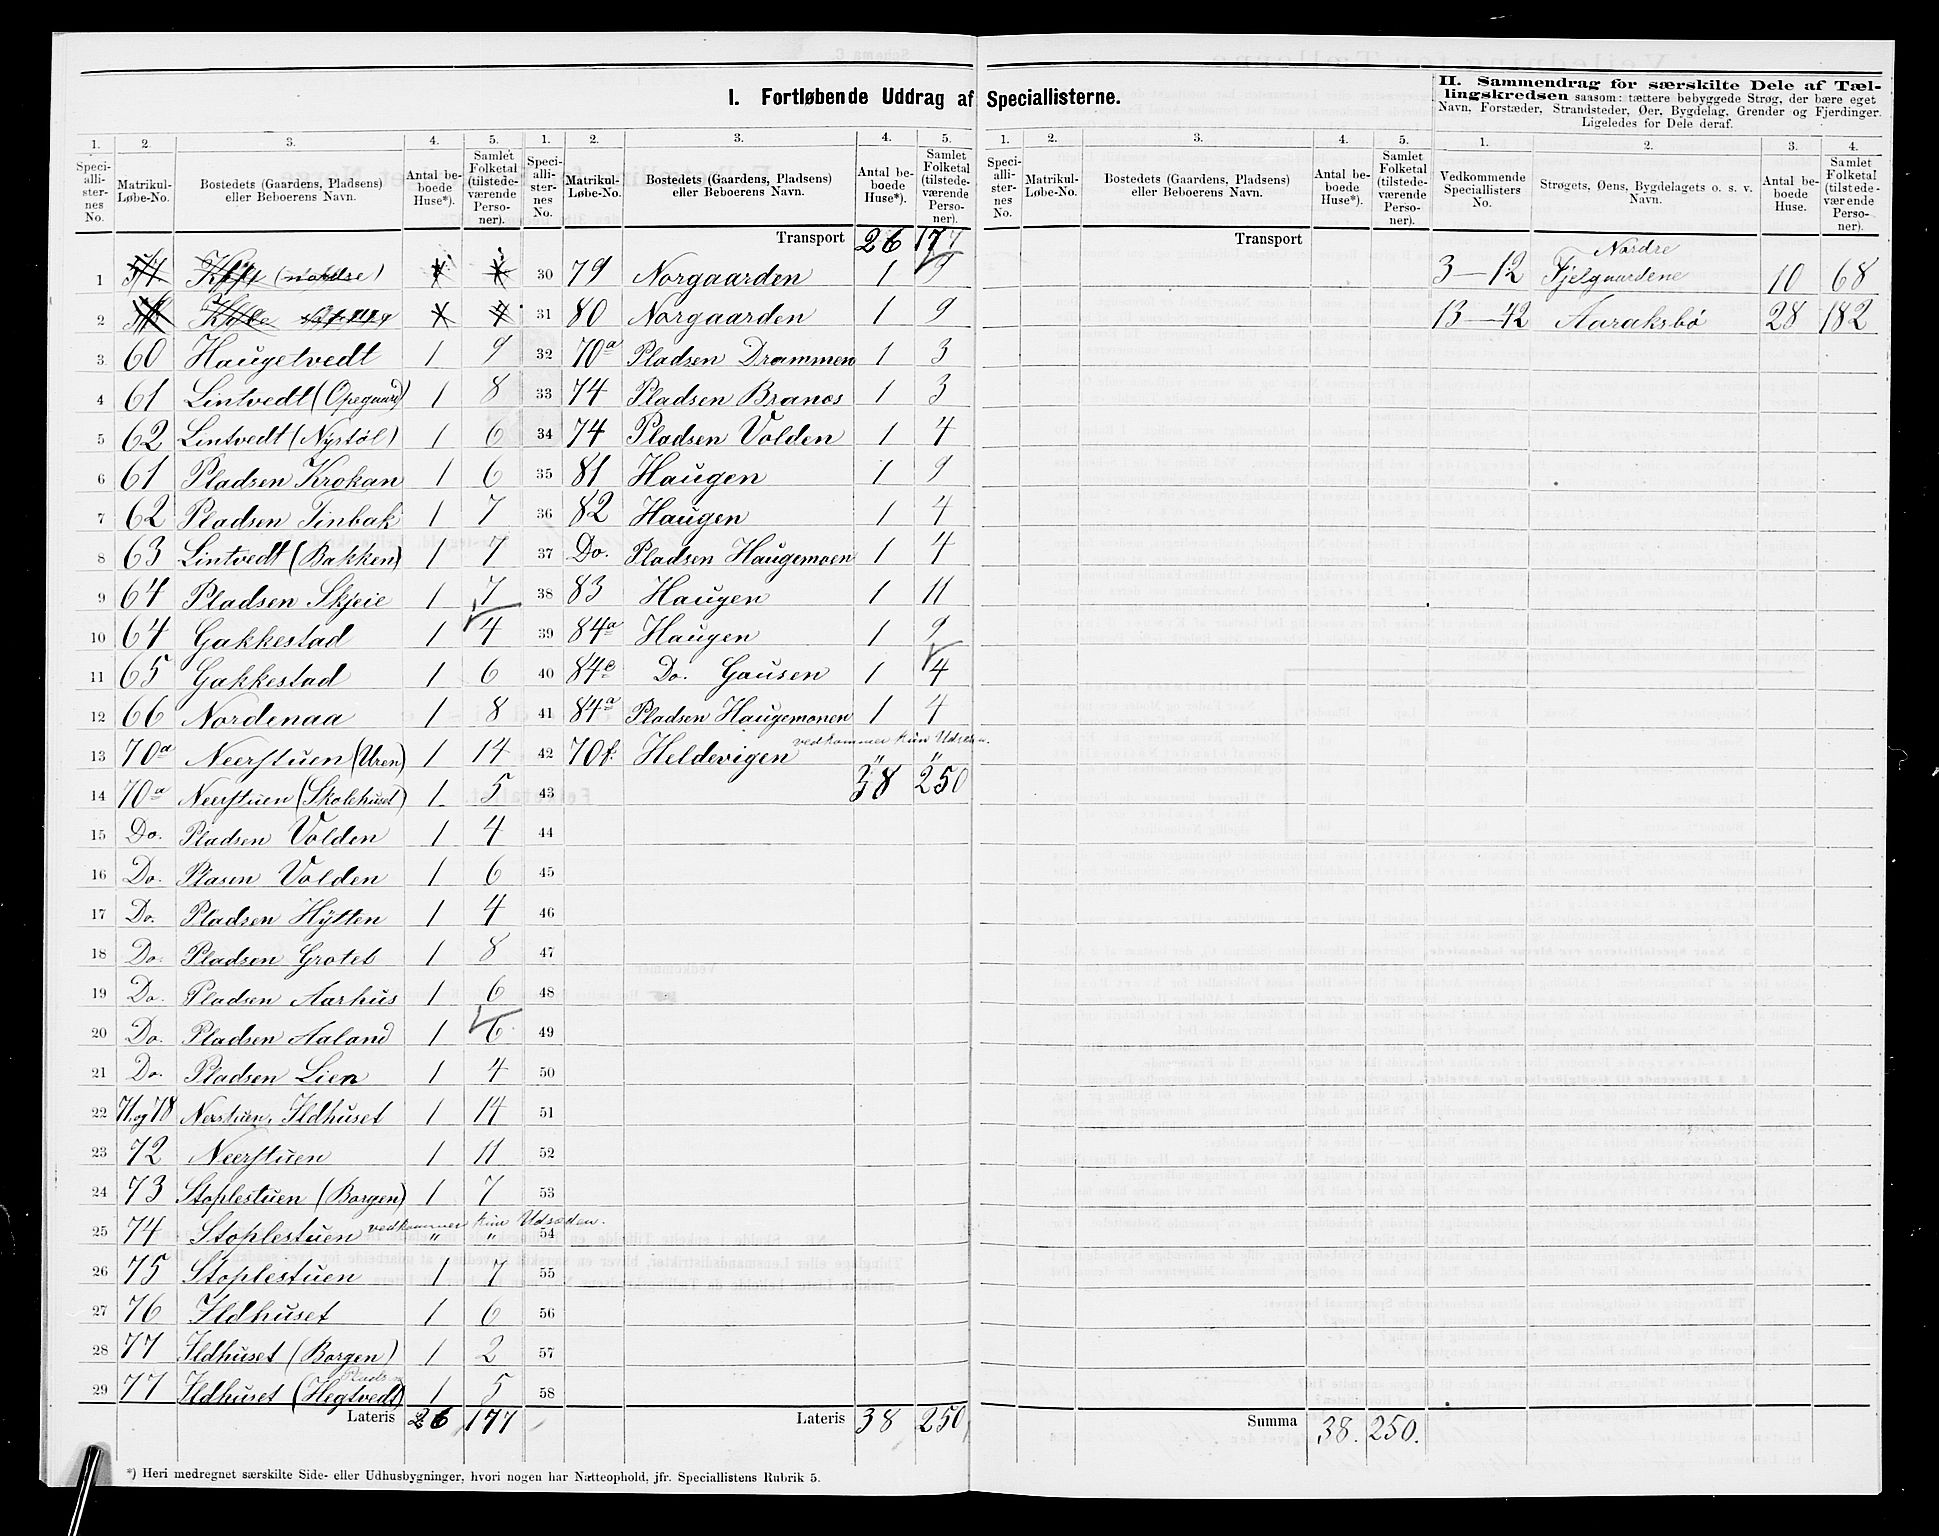 I. Fortløbende Uddrag af Speciallisterne.
1. 2. 3. 4. 5.
Speciallisternes No. Matrikul-Løbe-No. Bostedets (Gaardens, Pladsens) eller Beboerens Navn. Antal beboede Huse*). Samlet Folketal (tilstedeværende Personer).
1
2
3 60 Haugetvedt 1 9
4 61 Lintvedt (Opegaard) 1 8
5 62 Lintvedt (Nystøl) 1 6
6 61 Pladsen Krokan 1 6
7 62 Pladsen Tinbak 1 7
8 63 Lintvedt (Bakken) 1 7
9 64 Pladsen Skjeie 1 7
10 64 Gakkestad 1 4
11 65 Gakkestad 1 6
12 66 Nordenaa 1 8
13 70a Neerstuen (Uren) 1 14
14 70a Neerstuen (Skolehuset) 1 5
15 Do. Pladsen Volden 1 4
16 Do. Plasen Volden 1 6
17 Do. Pladsen Hytten 1 4
18 Do. Pladsen Groteb 1 8
19 Do. Pladsen Aarhus 1 6
20 Do. Pladsen Aaland 1 6
21 Do. Pladsen Lien 1 4
22 71 og 78 Nerstuen, Ildhuset 1 14
23 72 Neerstuen 1 11
24 73 Stoplestuen (Borgen) 1 7
25 74 Stoplestuen vedkommer kun Udsæden. " "
26 75 Stoplestuen 1 7
27 76 Ildhuset 1 6
28 77 Ildhuset (Borgen) 1 2
29 77 Ildhuset (Pladsen Hegtvedt) 1 5
Lateris 26 177
*) Heri medregnet særskilte Side- eller Udhusbygninger, hvori nogen har Natteophold, jfr. Speciallistens Rubrik 5.
1. 2. 3. 4. 5.
Speciallisternes No. Matrikul-Løbe-No. Bostedets (Gaardens, Pladsens) eller Beboerens Navn. Antal beboede Huse*). Samlet Folketal (tilstedeværende Personer).
Transport 26 177
30 79 Norgaarden 1 9
31 80 Norgaarden 1 9
32 70a Pladsen Drammen 1 3
33 74 Pladsen Branes 1 3
34 74 Pladsen Volden 1 4
35 81 Haugen 1 9
36 82 Haugen 1 4
37 Do. Pladsen Haugemoen 1 4
38 83 Haugen 1 11
39 84a Haugen 1 9
40 84c Do. Gausen 1 4
41 84a Pladsen Haugemonen 1 4
42 70f. Heldevigen vedkommer kun Udsæden. " "
43 38 250
44
45
46
47
48
49
50
51
52
53
54
55
56
57
58
Lateris 38 250
1. 2. 3. 4. 5.
Speciallisternes No. Matrikul-Løbe-No. Bostedets (Gaardens, Pladsens) eller Beboerens Navn. Antal beboede Huse*). Samlet Folketal (tilstedeværende Personer).
Transport
Summa 38. 250.
II. Sammendrag for særskilte Dele af Tællingskredsen saasom: tættere bebyggede Strøg, der bære eget
Navn, Forstæder, Strandsteder, Øer, Bygdelag, Grender og Fjerdinger.
Ligeledes for Dele deraf.
1. 2. 3. 4.
Vedkommende Speciallisters No. Strøgets, Øens, Bygdelagets o. s. v. Navn. Antal beboede Huse. Samlet Folketal (tilstedeværende Personer).
3–12 Nordre Fjelgaardene 10 68
13–42 Aaraksbø 28 182